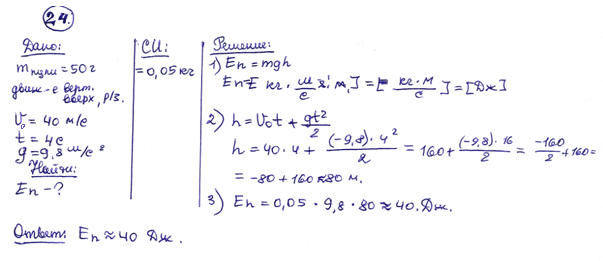 24.
Дано:
m пули = 50 г
движ-е верт. вверх, р/з.
V₀ = 40 м/с
t = 4с
g = 9,8 м/с²
Найти:
Eп - ?
СИ:
= 0,05 кг
Решение:
1) Eп = mgh
Eп = [кг · м/с · м] = [кг · м/с] = [Дж]
2) h = V₀t + gt²/2
h = 40 · 4 + (-9,8) · 4²/2 = 160 + (-9,8) · 16/2 = -160/2 + 160 =
= -80 + 160 ≈ 80 м.
3) Eп = 0,05 · 9,8 · 80 ≈ 40 Дж.
Ответ: Eп ≈ 40 Дж.